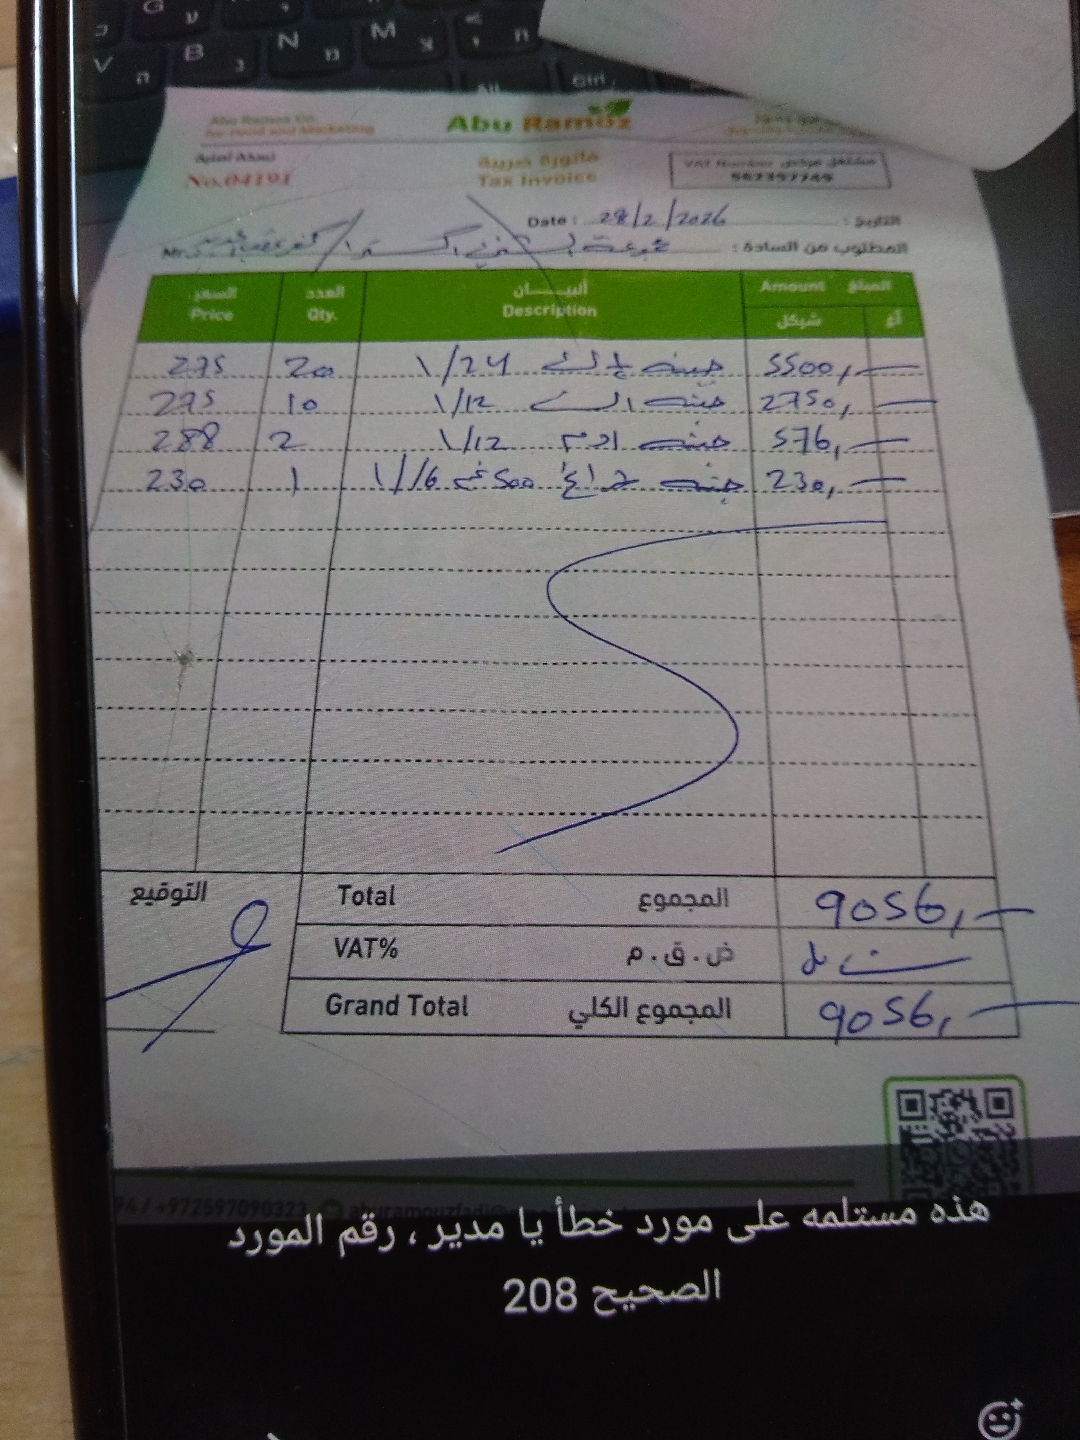 G
B
N
M
V
Abu Ramoz Co.
for Food and Marketing
Abu Ramoz
نسخة أصلية
فاتورة ضريبية
مشتغل مرخص VAT Number
No.04191
Tax Invoice
562397749
Date : 28/2/2026 التاريخ :
المطلوب من السادة :
السعر العدد البيـــــان المبلغ Amount
Price Qty. Description شيكل أغ
275 20 جبنة 1/24 5500,—
275 10 جبنه 1/12 2750,—
288 2 جبنه 1/12 576,—
230 1 جبنه 500 غم 1/16 230,—
التوقيع
Total المجموع 9056,—
VAT% ض.ق.م
Grand Total المجموع الكلي 9056,—
94 / +972597090323
هذه مستلمه على مورد خطأ يا مدير ، رقم المورد
الصحيح 208